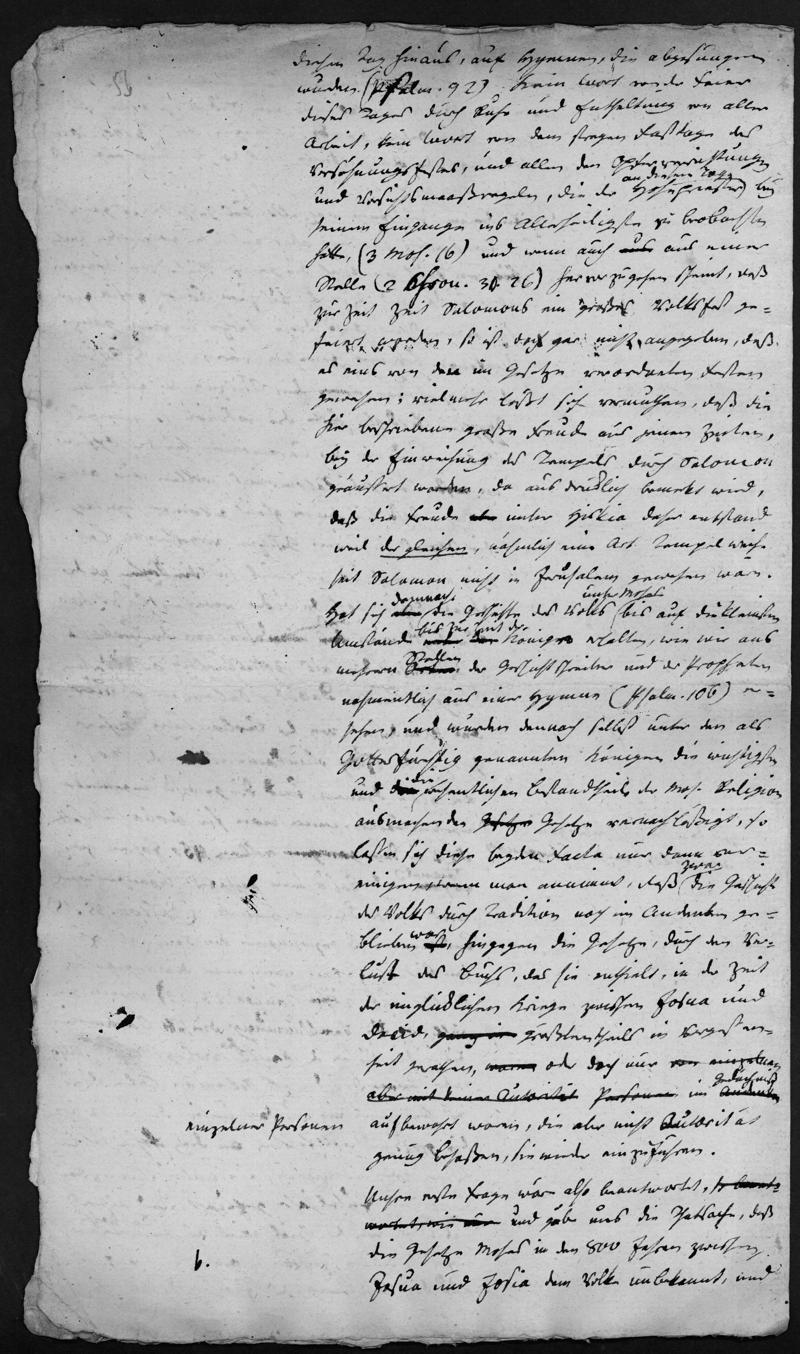 diesen Tag hinaus, auf Hymnen, die abgesungen
wurden. (Psalm. 92) Kein Wort von der Feier
dieses Tages durch Ruhe und Enthaltung von aller
Arbeit, kein Wort von dem strengen Fasttage des
Versöhnungsfestes, und allen den Opferverrichtungen
und Vorsichtsmaaßregeln, die der Hohepriester an diesem Tage bey
seinem Eingange ins Allerheiligste zu beobachten
hatte, (3 Mos. 16) und wenn auch aus aus einer
Stelle (2 Chron. 30. 26) hervorzugehen scheint, daß
zur Zeit Zeit Salomons ein großes Volksfest ge-
feiert worden, so ist doch gar nicht angegeben, daß
es eins von den im Gesetze verordneten Festen
gewesen; vielmehr läßt sich vermuthen, daß die
hier beschriebene große Freude aus jenen Zeiten,
bey der Einweihung des Tempels durch Salomon
geäussert worden, da ausdrüklich bemerkt wird,
daß die Freude unter Hiskia daher entstand
weil dergleichen, nähmlich eine Art Tempelweihe
seit Salomon nicht in Jerusalem gewesen wäre.
Hat sich demnach die Geschichte des Volks unter Moses bis auf die kleinsten
Umstände bis zur Zeit der Könige erhalten, wie wir aus
mehrern Stellen der Geschichtschreiber und der Propheten
nahmentlich aus einer Hymne (Psalm. 106) er-
sehen, und wurden dennoch selbst unter den als
Gottesfürchtig genannten Königen die wichtigsten
und die wesentlichen Bestandtheile der Mos. Religion
ausmachenden Gesetze Gesetze vernachläßigt, so
lassen sich diese beyden Facta nur dann ver-
einigen, wenn man annimmt, daß zwar die Geschichte
des Volks durch Tradition noch im Andenken ge-
blieben war, hingegen die Gesetze, durch den Ver-
lust des Buchs, das sie enthielt, in der Zeit
der unglücklichen Kriege zwischen Josua und
David, ganz in größtentheils in Vergessen-
heit gerathen, waren oder doch nur von einzelnen
aber mit keiner Autorität Personen im Gedächtniß Andenken
einzelner Personen
aufbewahrt waren, die aber nicht Autorität
genug besaßen, sie wieder einzuführen.
Unsere erste Frage wäre also beantwortet,
und gäbe uns die Thatsache, daß
die Gesetze Moses in den 800 Jahren zwischen
b.
Josua und Josia dem Volke unbekannt, und